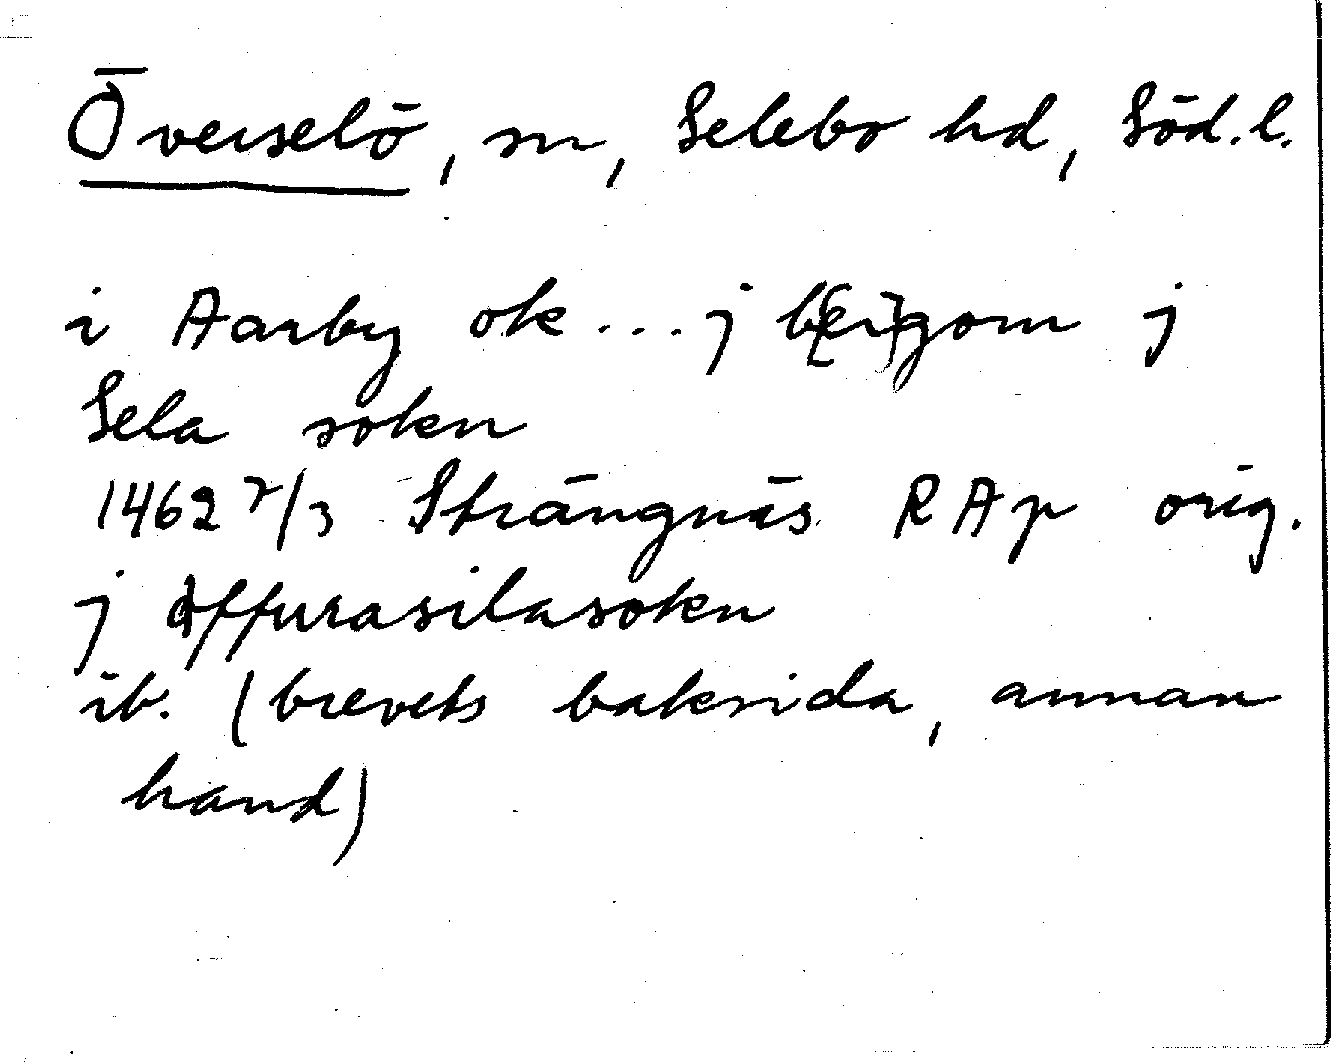 Överselö, sn, Selebo hd, Söd. l.
i Aarby ok ... j b[er]gom j
Sela sokn
1462 2/3 Strängnäs RAp orig.
j øffurasilasokn
ib. (brevets baksida, annan
hand)